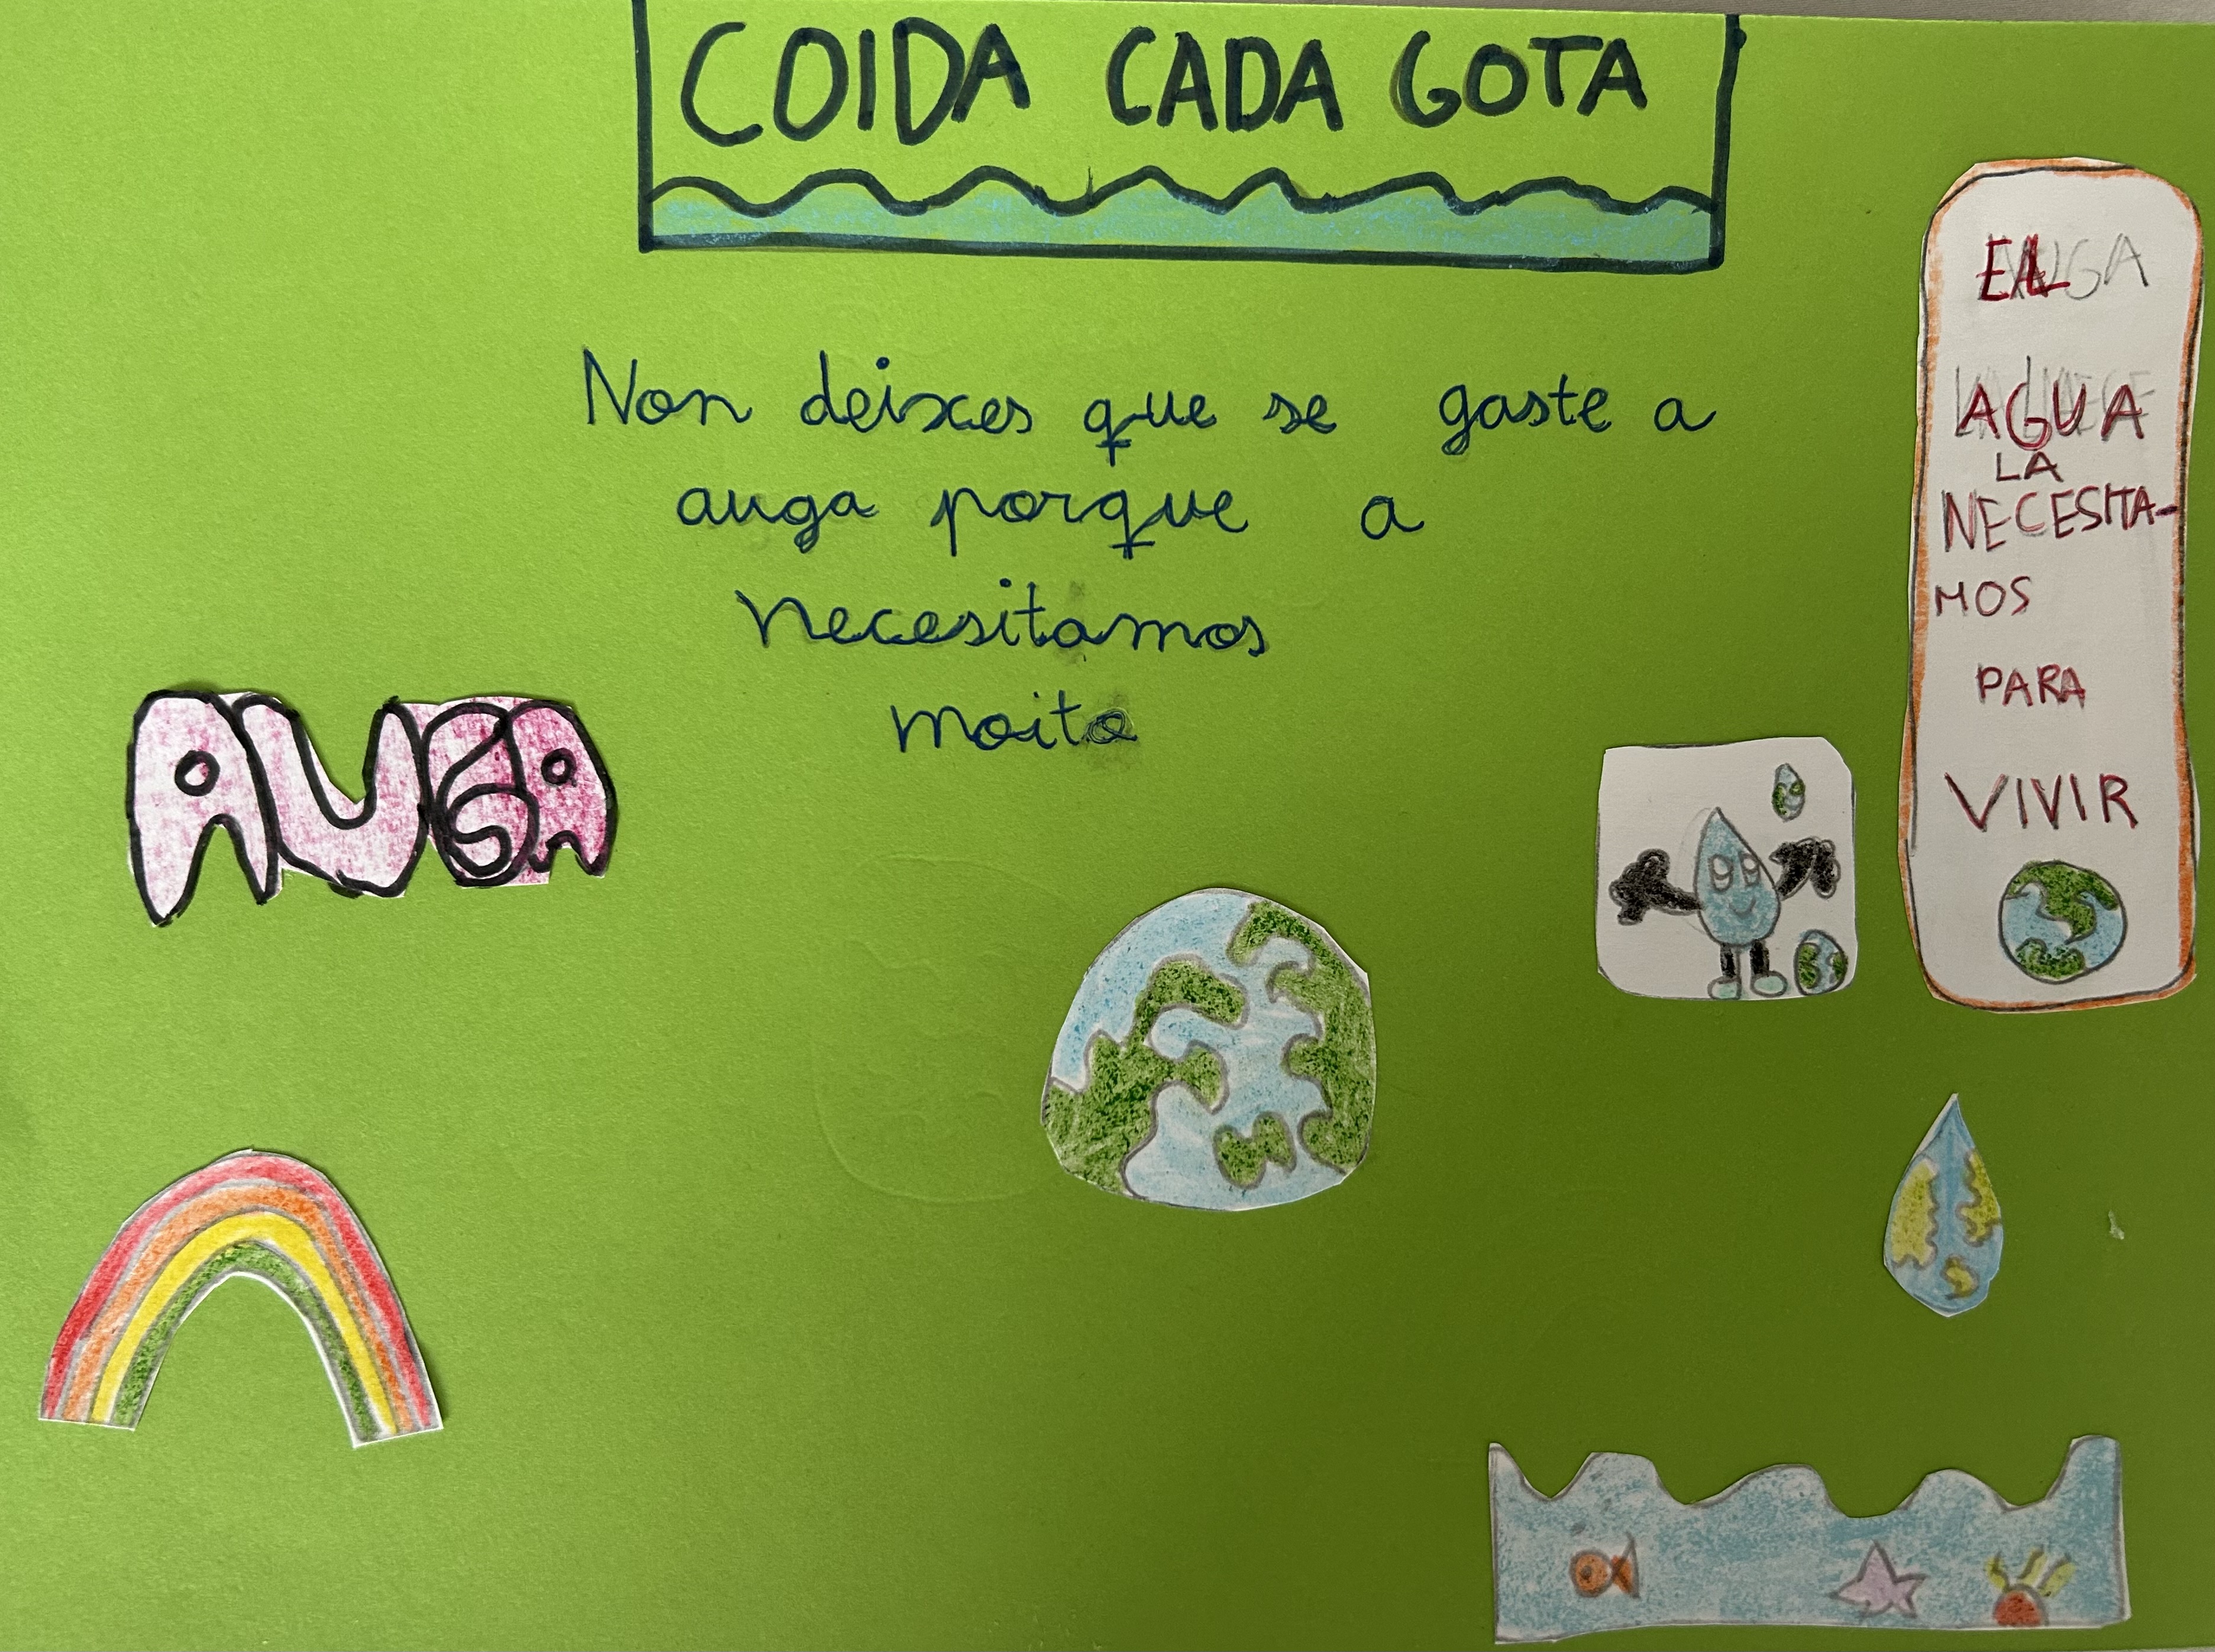 COIDA CADA GOTA
Non deixes que se gaste a
auga porque a
necesitamos
moito
AUGA
EL
AGUA
LA
NECESITA-
MOS
PARA
VIVIR